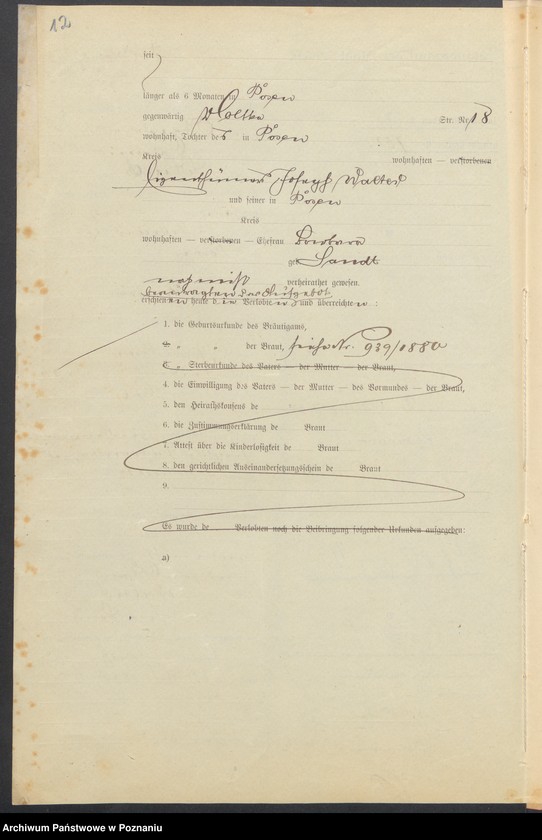 12
seit
länger als 6 Monaten in Posen
gegenwärtig Moltke Str. Nr. 18
wohnhaft, Tochter des in Posen
Kreis wohnhaften — verstorbenen
Eigenthümers Joseph Walter
und seiner in Posen
Kreis
wohnhaften — verstorbenen — Ehefrau Barbara
geb. Sandt
noch nicht verheirathet gewesen.
beantragten das Aufgebot
erschienen heute d. in Verlobten und überreichten:
1. die Geburtsurkunde des Bräutigams,
2. „ „ der Braut, siehe Nr. 939/1880
3. „ Sterbeurkunde des Vaters — der Mutter — der Braut,
4. die Einwilligung des Vaters — der Mutter — des Vormundes — der Braut,
5. den Heirathskonsens de
6. die Zustimmungserklärung de Braut
7. Attest über die Kinderlosigkeit de Braut
8. den gerichtlichen Auseinandersetzungsschein de Braut
9.
Es wurde de Verlobten noch die Beibringung folgender Urkunden aufgegeben:
a)
Archiwum Państwowe w Poznaniu